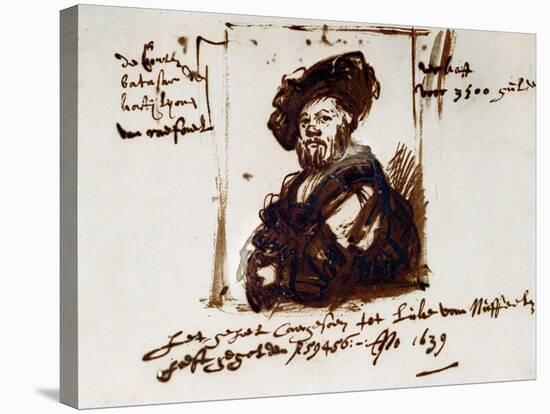 de Conte
batasar de
kastylyone
van raefael
verkoft
voor 3500 gulde
het geheel caergesoen tot Luke van Nuffeelen
heeft gegolden f 59456:- Ano 1639